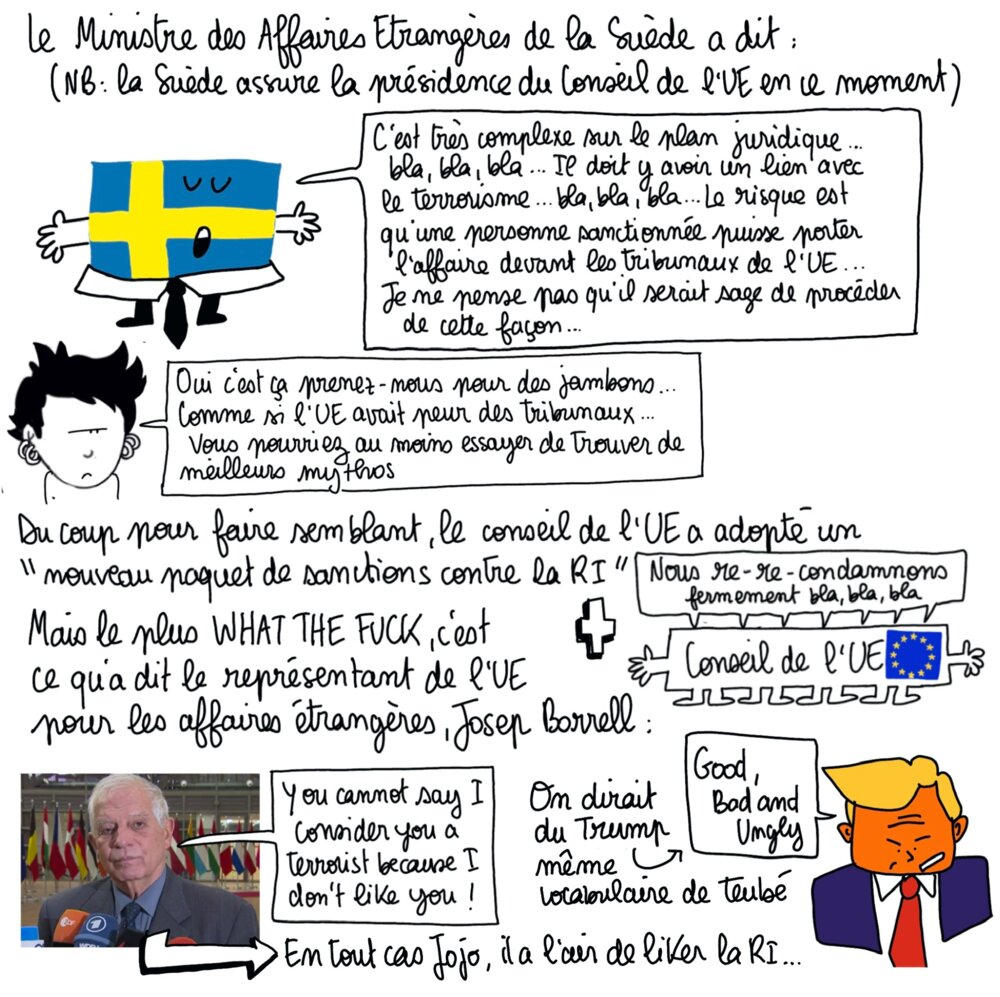 Le Ministre des Affaires Etrangères de la Suède a dit :
(NB: la Suède assure la présidence du Conseil de l'UE en ce moment)
C'est très complexe sur le plan juridique...
bla, bla, bla... Il doit y avoir un lien avec
le terrorisme... bla, bla, bla... Le risque est
qu'une personne sanctionnée puisse porter
l'affaire devant les tribunaux de l'UE...
Je ne pense pas qu'il serait sage de procéder
de cette façon...
Oui c'est ça prenez-nous pour des jambons...
Comme si l'UE avait peur des tribunaux...
Vous pourriez au moins essayer de trouver de
meilleurs mythos
Du coup pour faire semblant, le conseil de l'UE a adopté un
"nouveau paquet de sanctions contre la RI"
+
Nous re-re-condamnons
fermement bla, bla, bla
Conseil de l'UE
Mais le plus WHAT THE FUCK, c'est
ce qu'a dit le représentant de l'UE
pour les affaires étrangères, Josep Borrell :
You cannot say I
consider you a
terrorist because I
don't like you !
On dirait
du Trump
même
vocabulaire de teubé
Good,
Bad and
Ungly
ZDF
WDR
En tout cas Jojo, il a l'air de liker la RI...